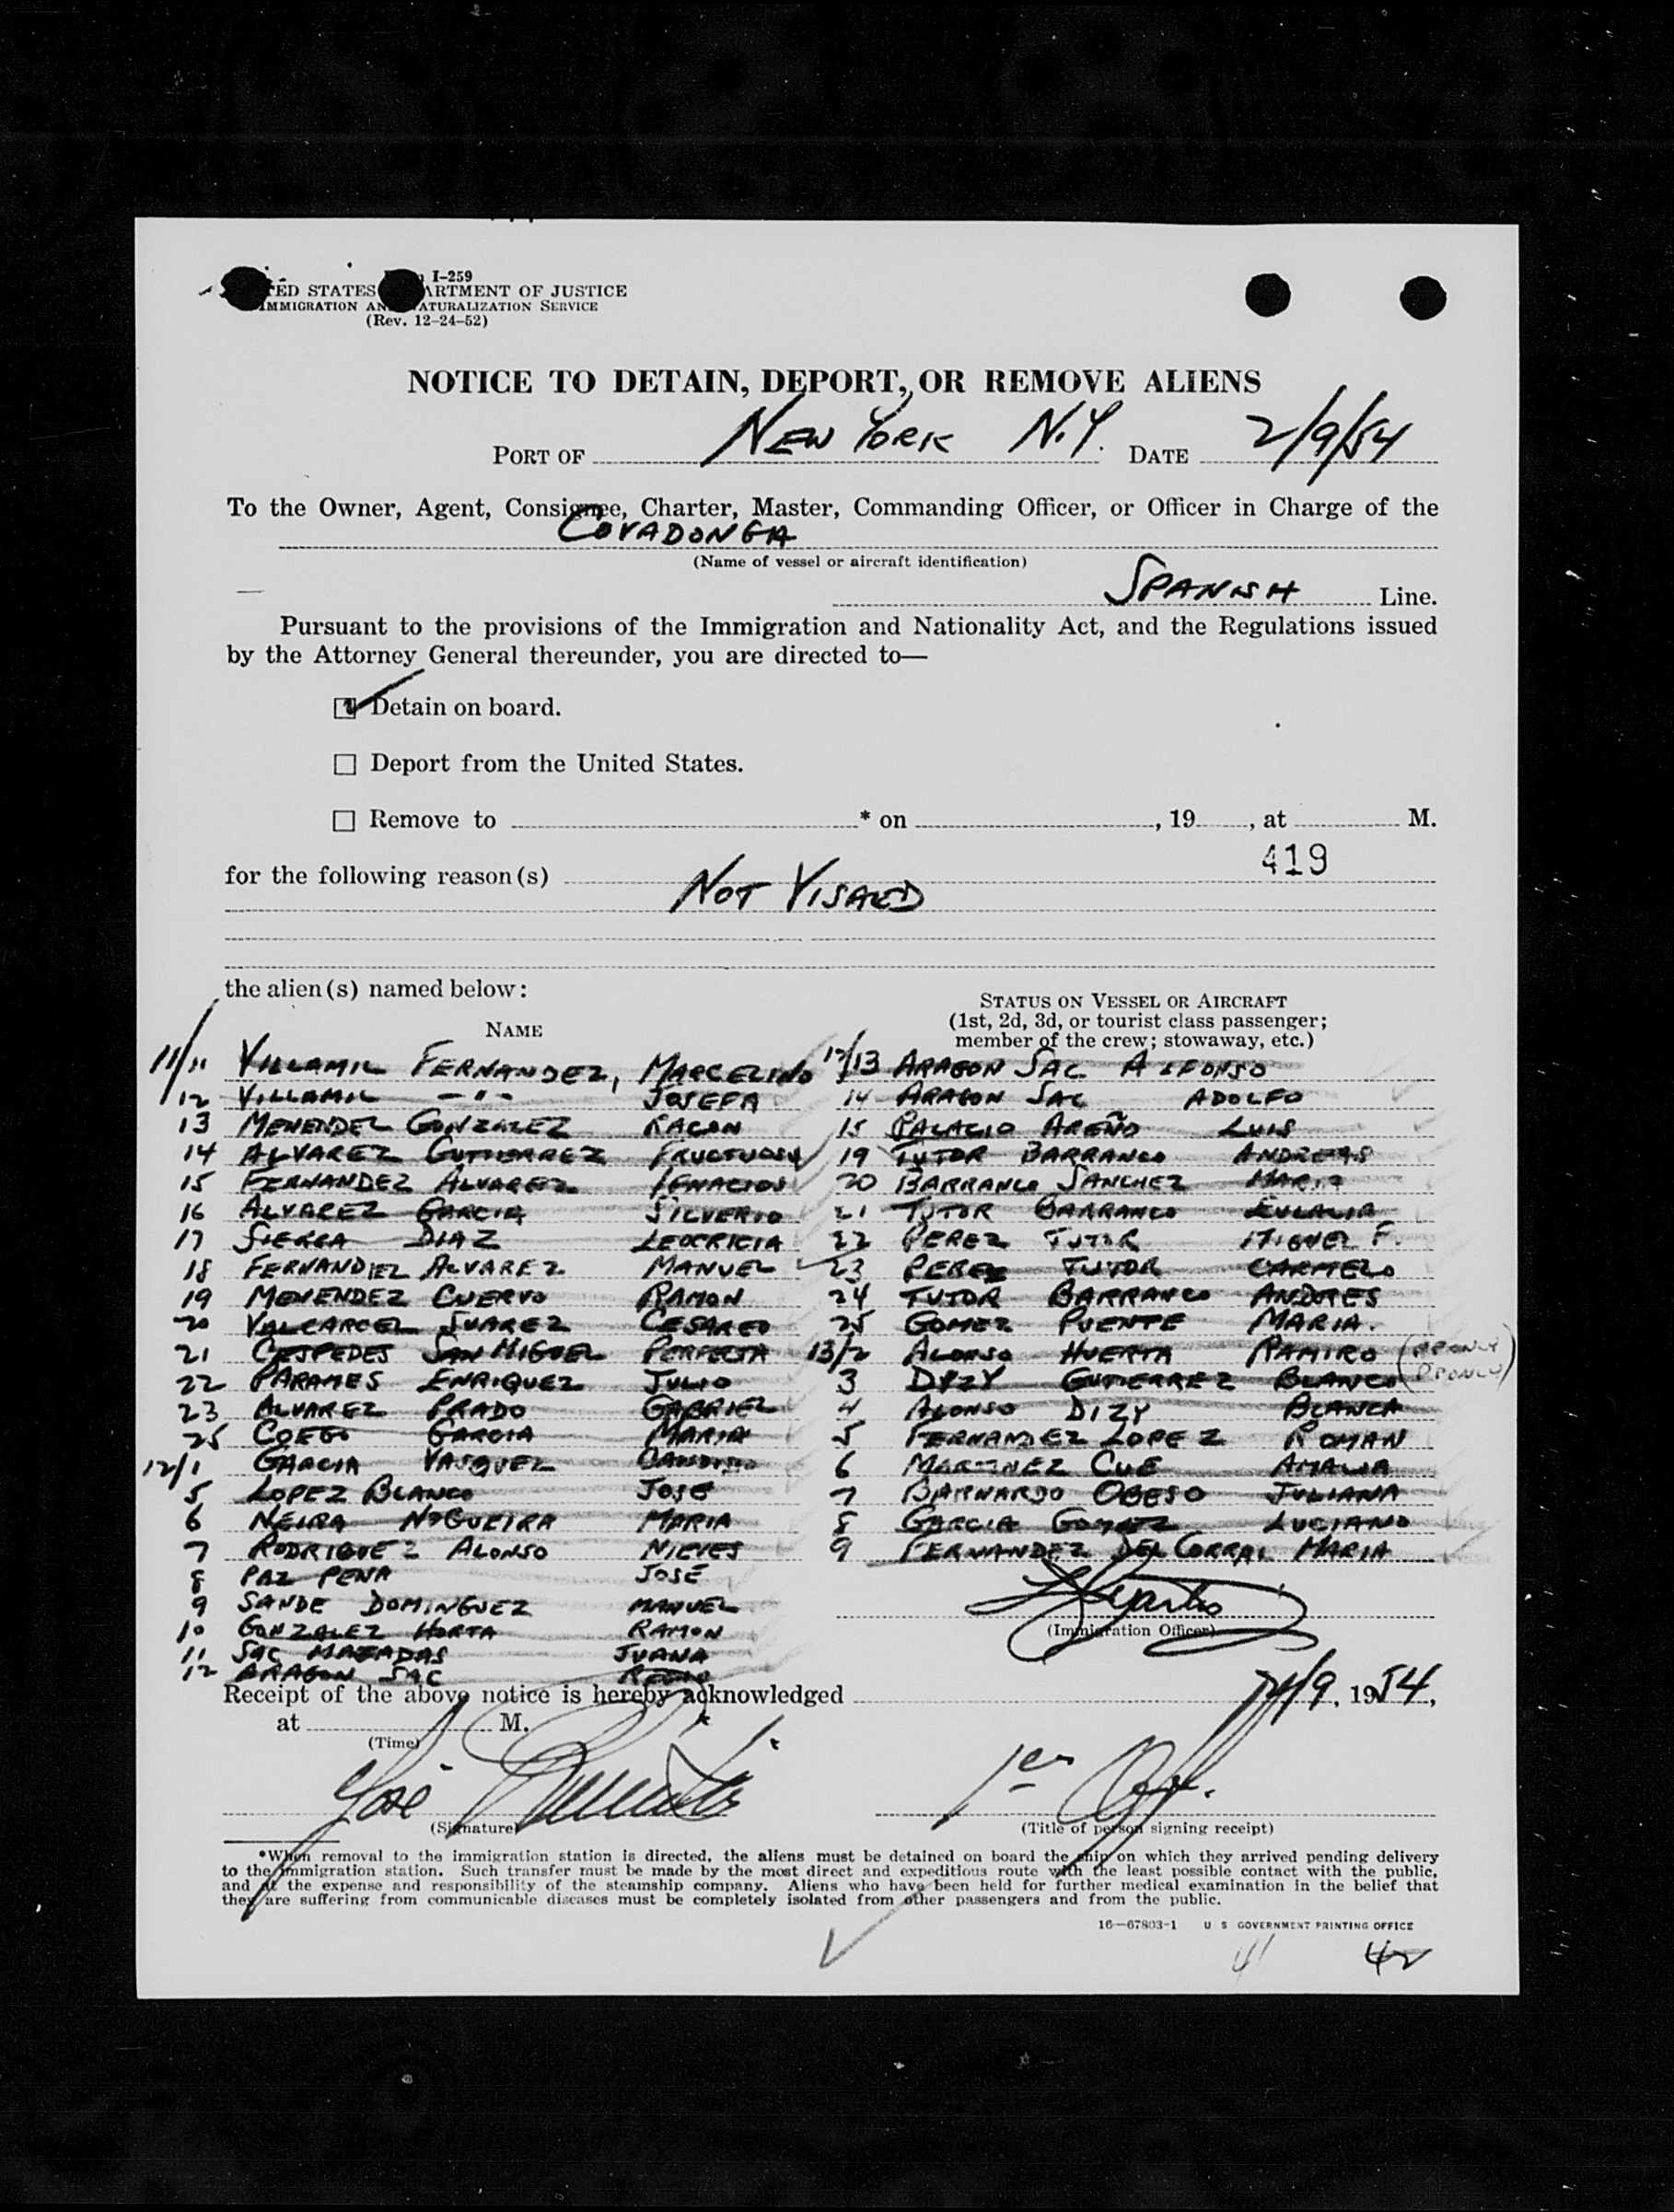 I-259
ED STATES ARTMENT OF JUSTICE
IMMIGRATION AN ATURALIZATION SERVICE
(Rev. 12-24-52)
NOTICE TO DETAIN, DEPORT, OR REMOVE ALIENS
PORT OF NEW YORK N.Y. DATE 2/9/54
To the Owner, Agent, Consignee, Charter, Master, Commanding Officer, or Officer in Charge of the
COVADONGA
(Name of vessel or aircraft identification)
SPANISH Line.
Pursuant to the provisions of the Immigration and Nationality Act, and the Regulations issued
by the Attorney General thereunder, you are directed to—
Detain on board.
Deport from the United States.
Remove to * on , 19 , at M.
419
for the following reason(s)
NOT VISAED
the alien(s) named below:
NAME
STATUS ON VESSEL OR AIRCRAFT
(1st, 2d, 3d, or tourist class passenger;
member of the crew; stowaway, etc.)
11/11 VILLAMIL FERNANDEZ, MARCELINO
12 VILLAMIL -"- JOSEFA
13 MENENDEZ GONZALEZ
14 ALVAREZ GUTIERREZ FRUCTUOSO
15 FERNANDEZ ALVAREZ
16 ALVAREZ GARCIA SILVERIO
17 SIERRA DIAZ LEOCRICIA
18 FERNANDEZ ALVAREZ MANUEL
19 MENENDEZ CUERVO RAMON
20 VALCARCEL SUAREZ CESAREO
21 CESPEDES SAN MIGUEL PERFECTA
22 PARAMES ENRIQUEZ JULIO
23 ALVAREZ PRADO GABRIEL
25 GARCIA MARIA
12/1 GARCIA VASQUEZ
5 LOPEZ BLANCO JOSE
6 NEIRA NOGUEIRA MARIA
7 RODRIGUEZ ALONSO NIEVES
8 PAZ PENA JOSE
9 SANDE DOMINGUEZ MANUEL
10 GONZALEZ HORTA RAMON
11 SAC JUANA
12 ARAGON SAC
12/13 ARAGON SAC ALFONSO
14 ARAGON SAC ADOLFO
15 PALACIO AREÑO LUIS
19 TUTOR BARRANCO
20 BARRANCO SANCHEZ
21 TUTOR BARRANCO EULALIA
22 PEREZ TUTOR MIGUEL F.
23 PEREZ TUTOR CARMELO
24 TUTOR BARRANCO ANDRES
25 GOMEZ PUENTE MARIA.
13/2 ALONSO HUERTA RAMIRO
3 DYZY GUTIERREZ
4 ALONSO DIZY BLANCA
5 FERNANDEZ LOPEZ ROMAN
6 MARTINEZ CUE AMALIA
7 BARNARDO OBESO JULIANA
8 GARCIA GOMEZ LUCIANO
9 FERNANDEZ DEL CORRAL MARIA
(Immigration Officer)
Receipt of the above notice is hereby acknowledged 2/9, 1954,
at M.
(Time)
José
(Signature)
(Title of person signing receipt)
*When removal to the immigration station is directed, the aliens must be detained on board the ship on which they arrived pending delivery
to the immigration station. Such transfer must be made by the most direct and expeditious route with the least possible contact with the public,
and at the expense and responsibility of the steamship company. Aliens who have been held for further medical examination in the belief that
they are suffering from communicable diseases must be completely isolated from other passengers and from the public.
16—67803-1 U S GOVERNMENT PRINTING OFFICE
41 42